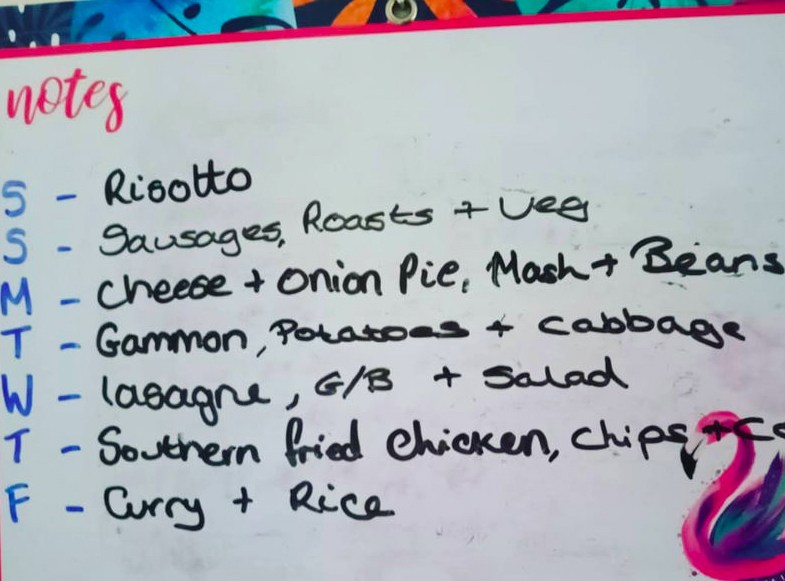 notes
S - Risotto
S - Sausages, Roasts + Veg
M - Cheese + Onion Pie, Mash + Beans
T - Gammon, Potatoes + Cabbage
W - lasagne, G/B + Salad
T - Southern fried chicken, chips +
F - Curry + Rice